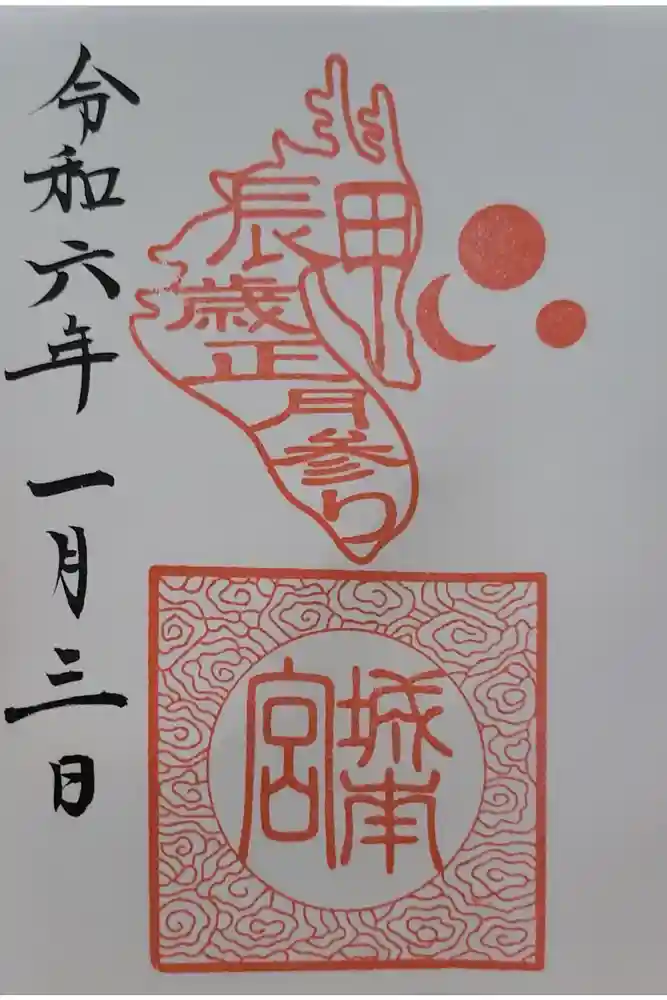 甲辰歳正月参り
城南宮
令和六年一月三日